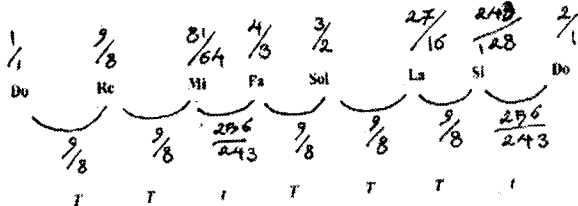 1/1 9/8 81/64 4/3 3/2 27/16 243/128 2/1
Do Re Mi Fa Sol La Si Do
9/8 9/8 256/243 9/8 9/8 9/8 256/243
T T t T T T t